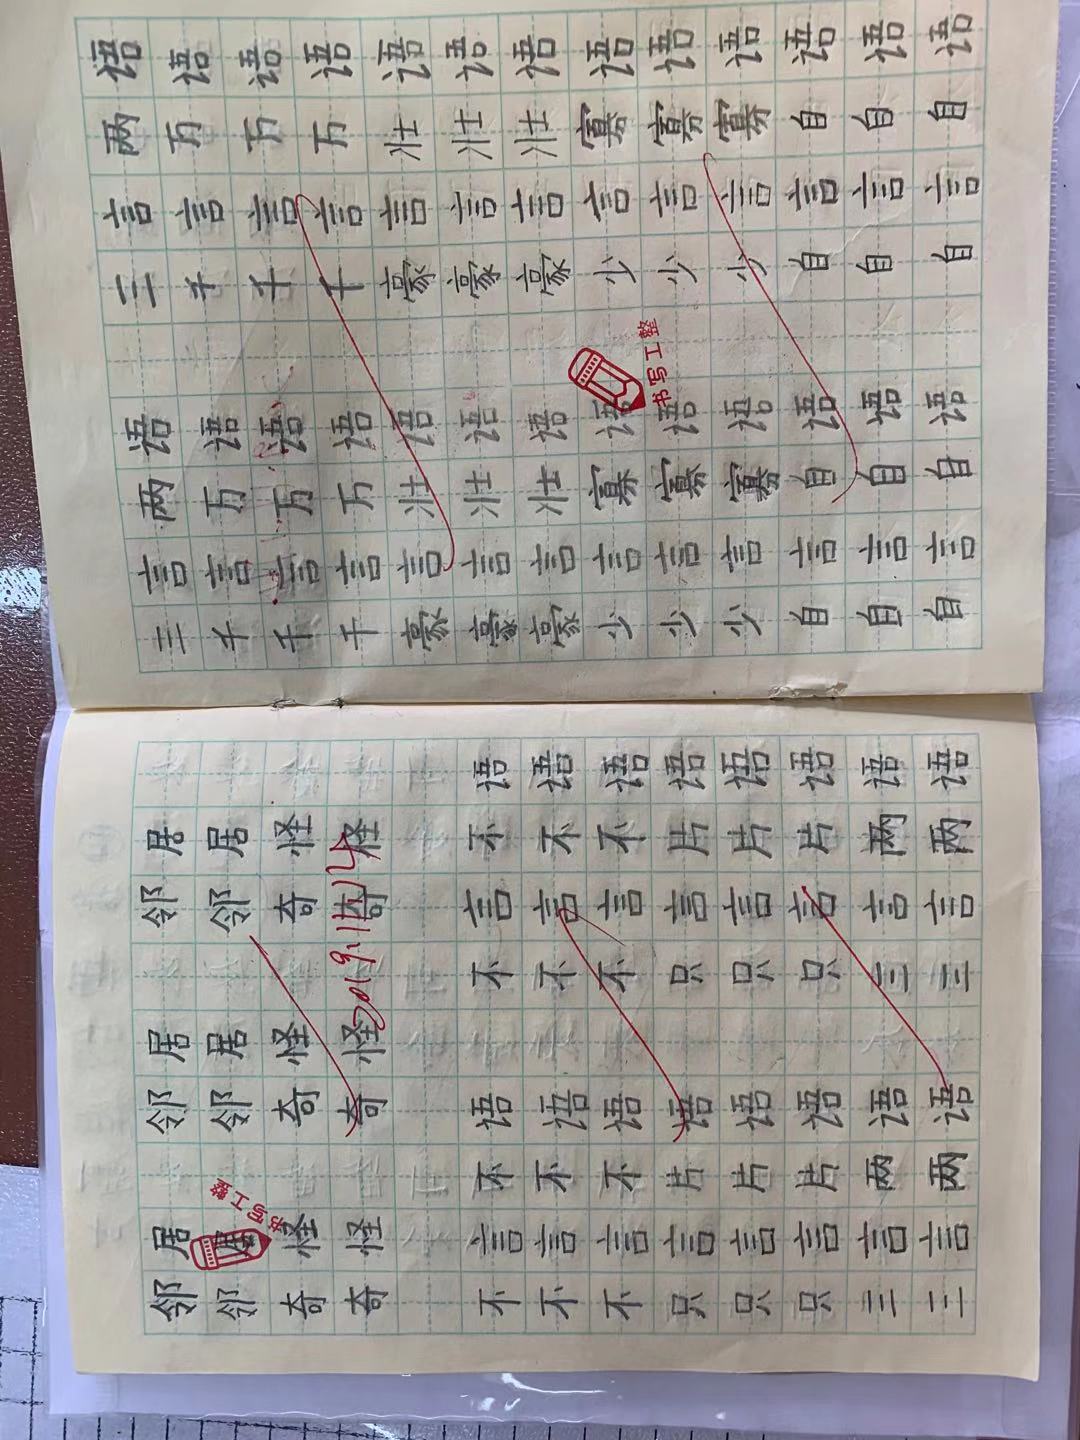 邻居 邻居 邻居
邻居 邻居 邻居
书写工整
奇怪 奇怪 奇怪
奇怪 奇怪 奇怪
2019.11.14
不言不语 不言不语
不言不语 不言不语
不言不语 不言不语
只言片语 只言片语
只言片语 只言片语
只言片语 只言片语
三言两语 三言两语
三言两语 三言两语
三言两语 三言两语
千言万语 千言万语
千言万语 千言万语
千言万语 千言万语
豪言壮语 豪言壮语
豪言壮语 豪言壮语
豪言壮语 豪言壮语
少言寡语 少言寡语
书写工整
少言寡语 少言寡语
少言寡语 少言寡语
自言自语 自言自语
自言自语 自言自语
自言自语 自言自语